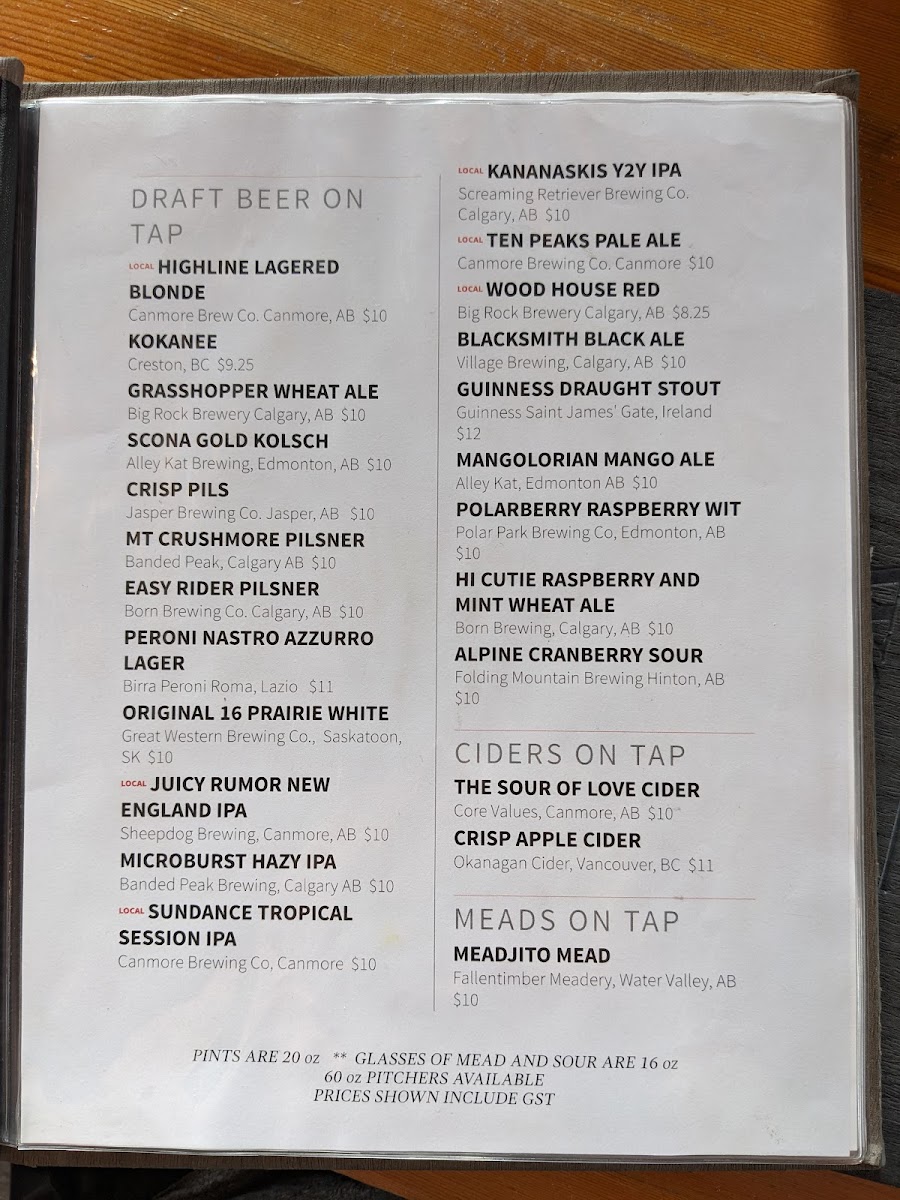 DRAFT BEER ON
TAP
LOCAL HIGHLINE LAGERED
BLONDE
Canmore Brew Co. Canmore, AB $10
KOKANEE
Creston, BC $9.25
GRASSHOPPER WHEAT ALE
Big Rock Brewery Calgary, AB $10
SCONA GOLD KOLSCH
Alley Kat Brewing, Edmonton, AB $10
CRISP PILS
Jasper Brewing Co. Jasper, AB $10
MT CRUSHMORE PILSNER
Banded Peak, Calgary AB $10
EASY RIDER PILSNER
Born Brewing Co. Calgary, AB $10
PERONI NASTRO AZZURRO
LAGER
Birra Peroni Roma, Lazio $11
ORIGINAL 16 PRAIRIE WHITE
Great Western Brewing Co., Saskatoon,
SK $10
LOCAL JUICY RUMOR NEW
ENGLAND IPA
Sheepdog Brewing, Canmore, AB $10
MICROBURST HAZY IPA
Banded Peak Brewing, Calgary AB $10
LOCAL SUNDANCE TROPICAL
SESSION IPA
Canmore Brewing Co, Canmore $10
LOCAL KANANASKIS Y2Y IPA
Screaming Retriever Brewing Co.
Calgary, AB $10
LOCAL TEN PEAKS PALE ALE
Canmore Brewing Co. Canmore $10
LOCAL WOOD HOUSE RED
Big Rock Brewery Calgary, AB $8.25
BLACKSMITH BLACK ALE
Village Brewing, Calgary, AB $10
GUINNESS DRAUGHT STOUT
Guinness Saint James' Gate, Ireland
$12
MANGOLORIAN MANGO ALE
Alley Kat, Edmonton AB $10
POLARBERRY RASPBERRY WIT
Polar Park Brewing Co, Edmonton, AB
$10
HI CUTIE RASPBERRY AND
MINT WHEAT ALE
Born Brewing, Calgary, AB $10
ALPINE CRANBERRY SOUR
Folding Mountain Brewing Hinton, AB
$10
CIDERS ON TAP
THE SOUR OF LOVE CIDER
Core Values, Canmore, AB $10
CRISP APPLE CIDER
Okanagan Cider, Vancouver, BC $11
MEADS ON TAP
MEADJITO MEAD
Fallentimber Meadery, Water Valley, AB
$10
PINTS ARE 20 oz ** GLASSES OF MEAD AND SOUR ARE 16 oz
60 oz PITCHERS AVAILABLE
PRICES SHOWN INCLUDE GST